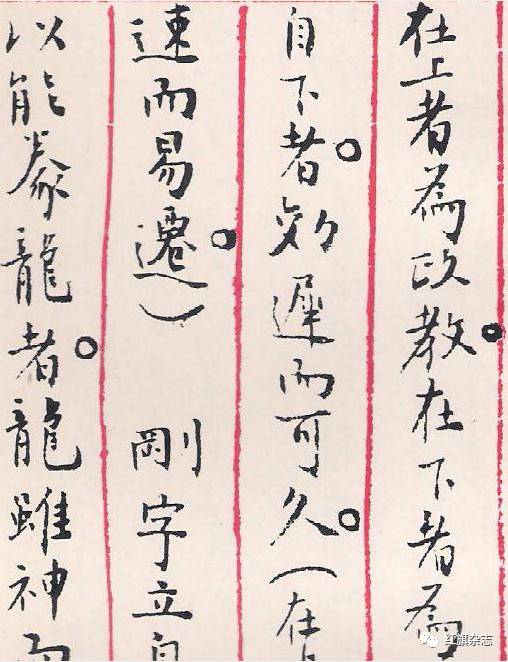 在上者為政教。在下者為
自下者。効遲而可久。（在
速而易遷。） 剛字立自
以能豢龍者。龍雖神而
红旗杂志